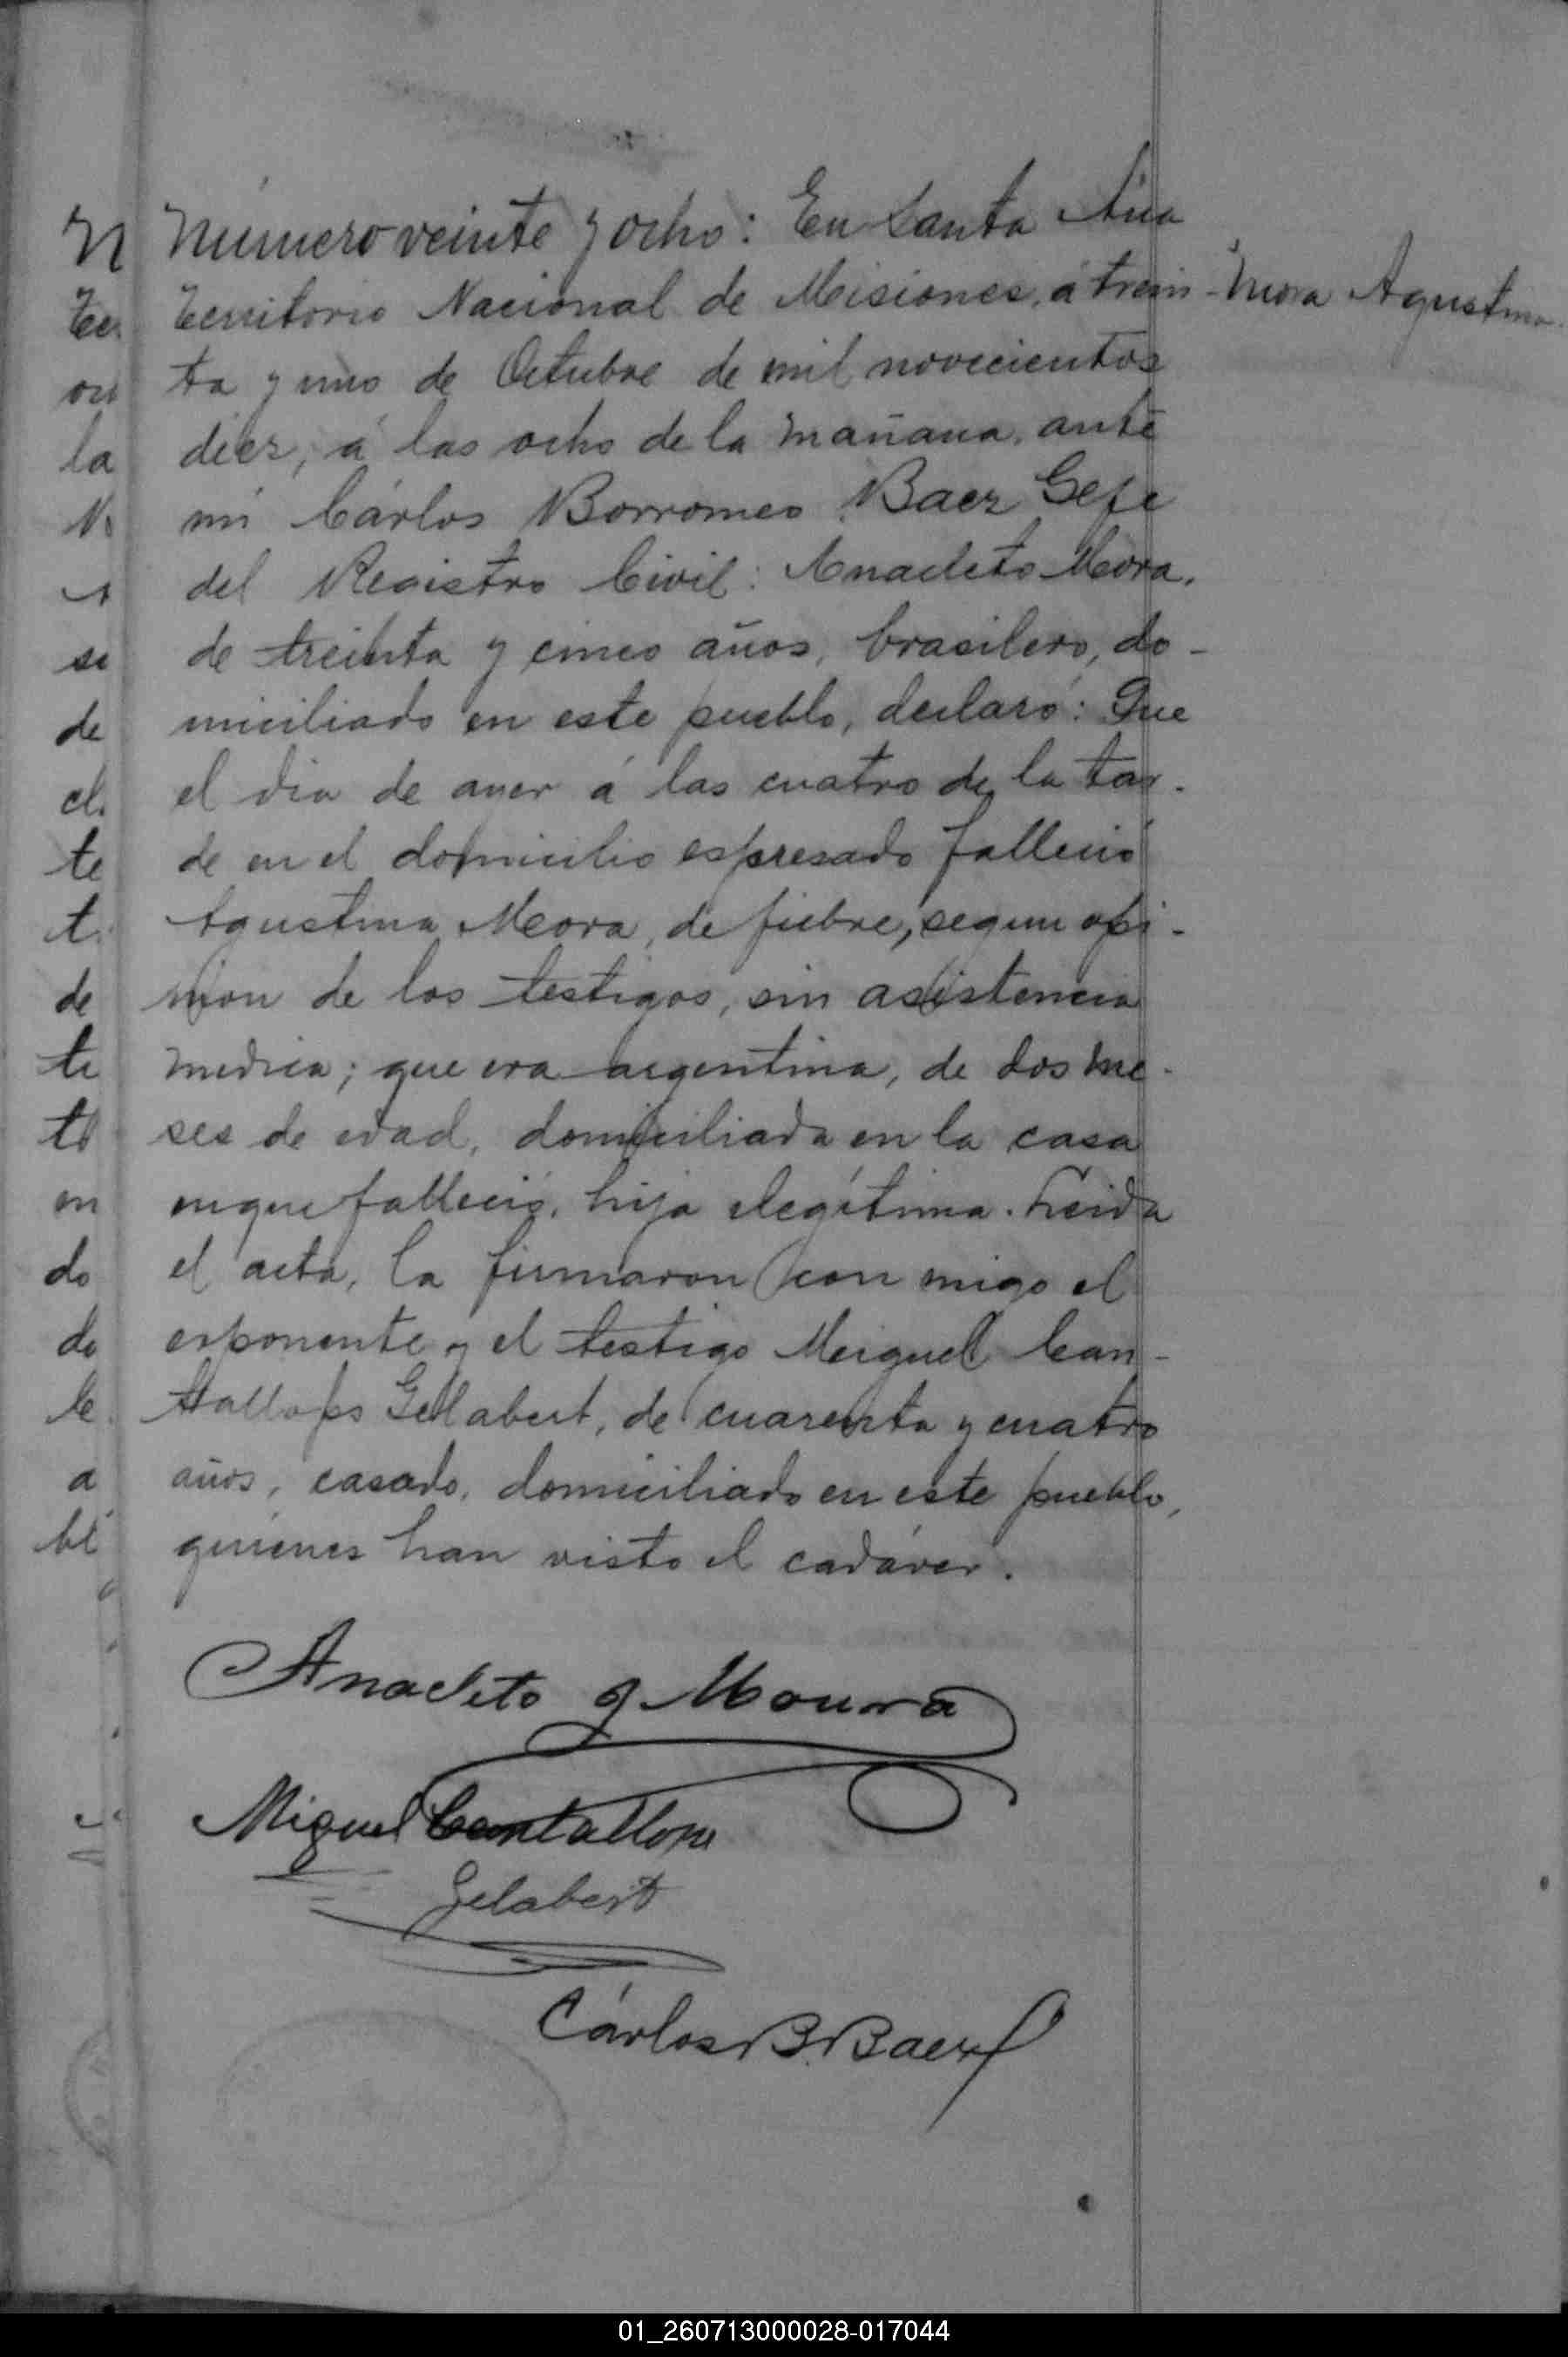 Número veinte y ocho: En Santa Ana
Territorio Nacional de Misiones, á trein-
Mora Agustina
ta y uno de Octubre de mil novecientos
diez, á las ocho de la mañana, ante
mi Cárlos Borromeo Baez Gefe
del Registro Civil: Anacleto Mora,
de treinta y cinco años, brasilero, do-
miciliado en este pueblo, declaró: Que
el dia de ayer á las cuatro de la tar-
de en el domicilio espresado falleció
Agustina Mora, de fiebre, segun opi-
nion de los testigos, sin asistencia
medica; que era argentina, de dos me-
ses de edad, domiciliada en la casa
en que falleció, hija ilegítima. Leida
el acta, la firmaron con migo el
esponente y el testigo Miguel Can-
tallops Gelabert, de cuarenta y cuatro
años, casado, domiciliado en este pueblo,
quienes han visto el cadáver.
Anacleto J Moura
Miguel Cantallops
Gelabert
Cárlos B. Baez
01_260713000028-017044